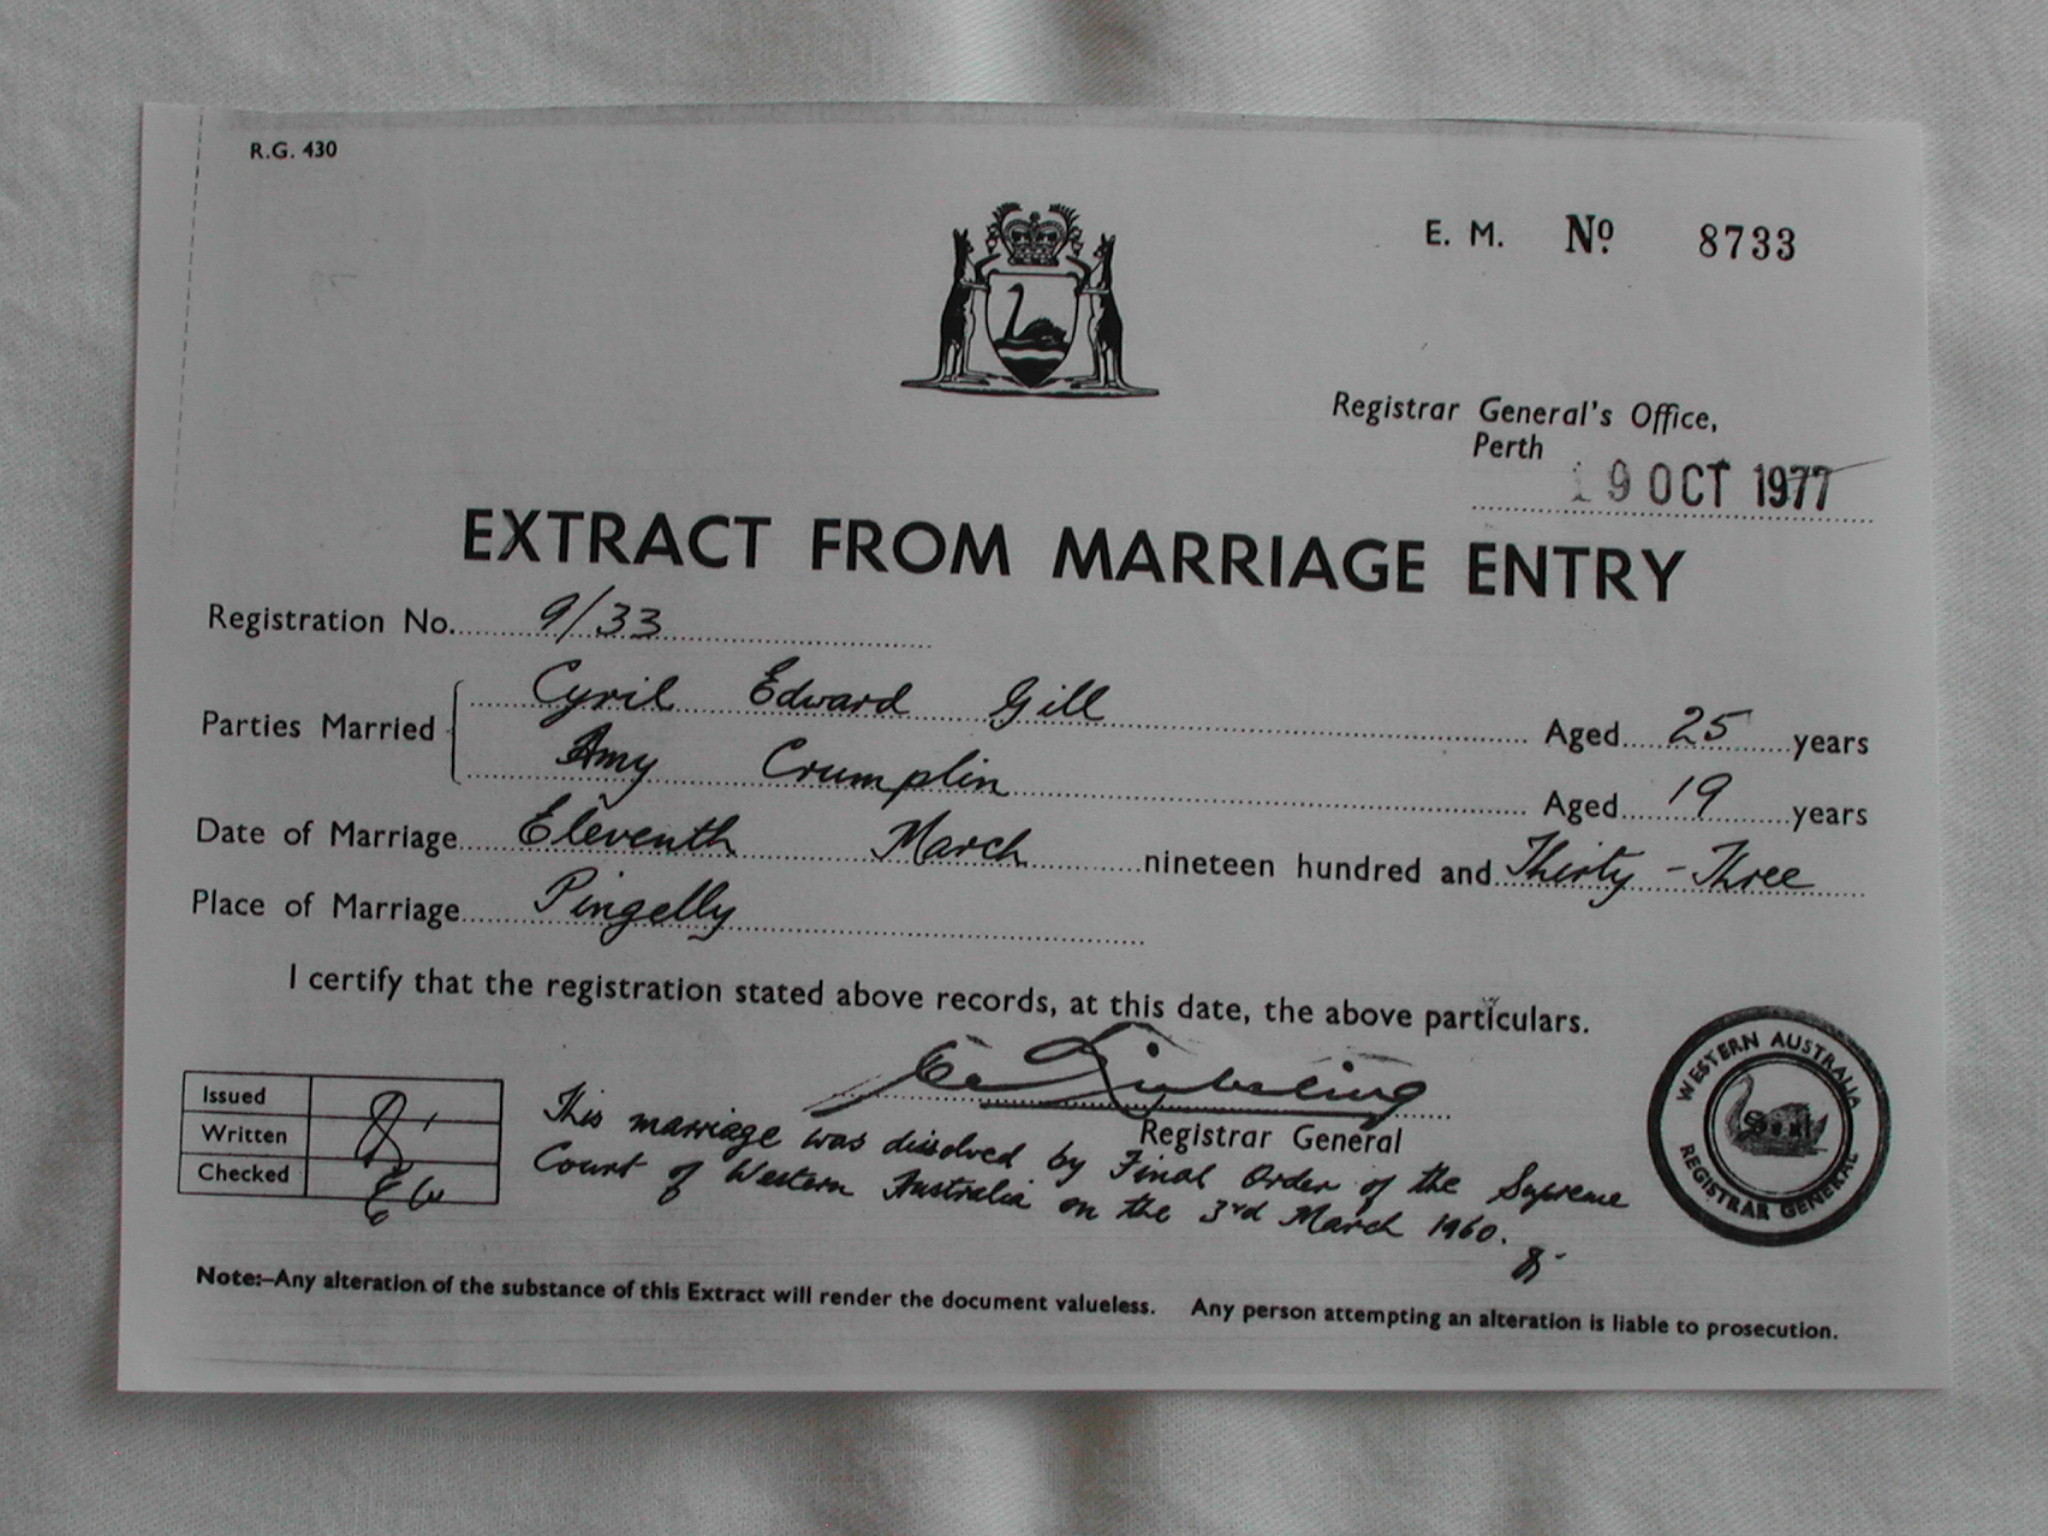 R.G. 430
E. M. Nº 8733
Registrar General's Office,
Perth
19 OCT 1977
EXTRACT FROM MARRIAGE ENTRY
Registration No. 9/33
Parties Married Cyril Edward Gill Aged 25 years
Amy Crumplin Aged 19 years
Date of Marriage Eleventh March nineteen hundred and Thirty-Three
Place of Marriage Pingelly
I certify that the registration stated above records, at this date, the above particulars.
Registrar General
Issued
Written
Checked
This marriage was dissolved by Final Order of the Supreme
Court of Western Australia on the 3rd March 1960.
WESTERN AUSTRALIA
Seal
REGISTRAR GENERAL
Note:–Any alteration of the substance of this Extract will render the document valueless. Any person attempting an alteration is liable to prosecution.